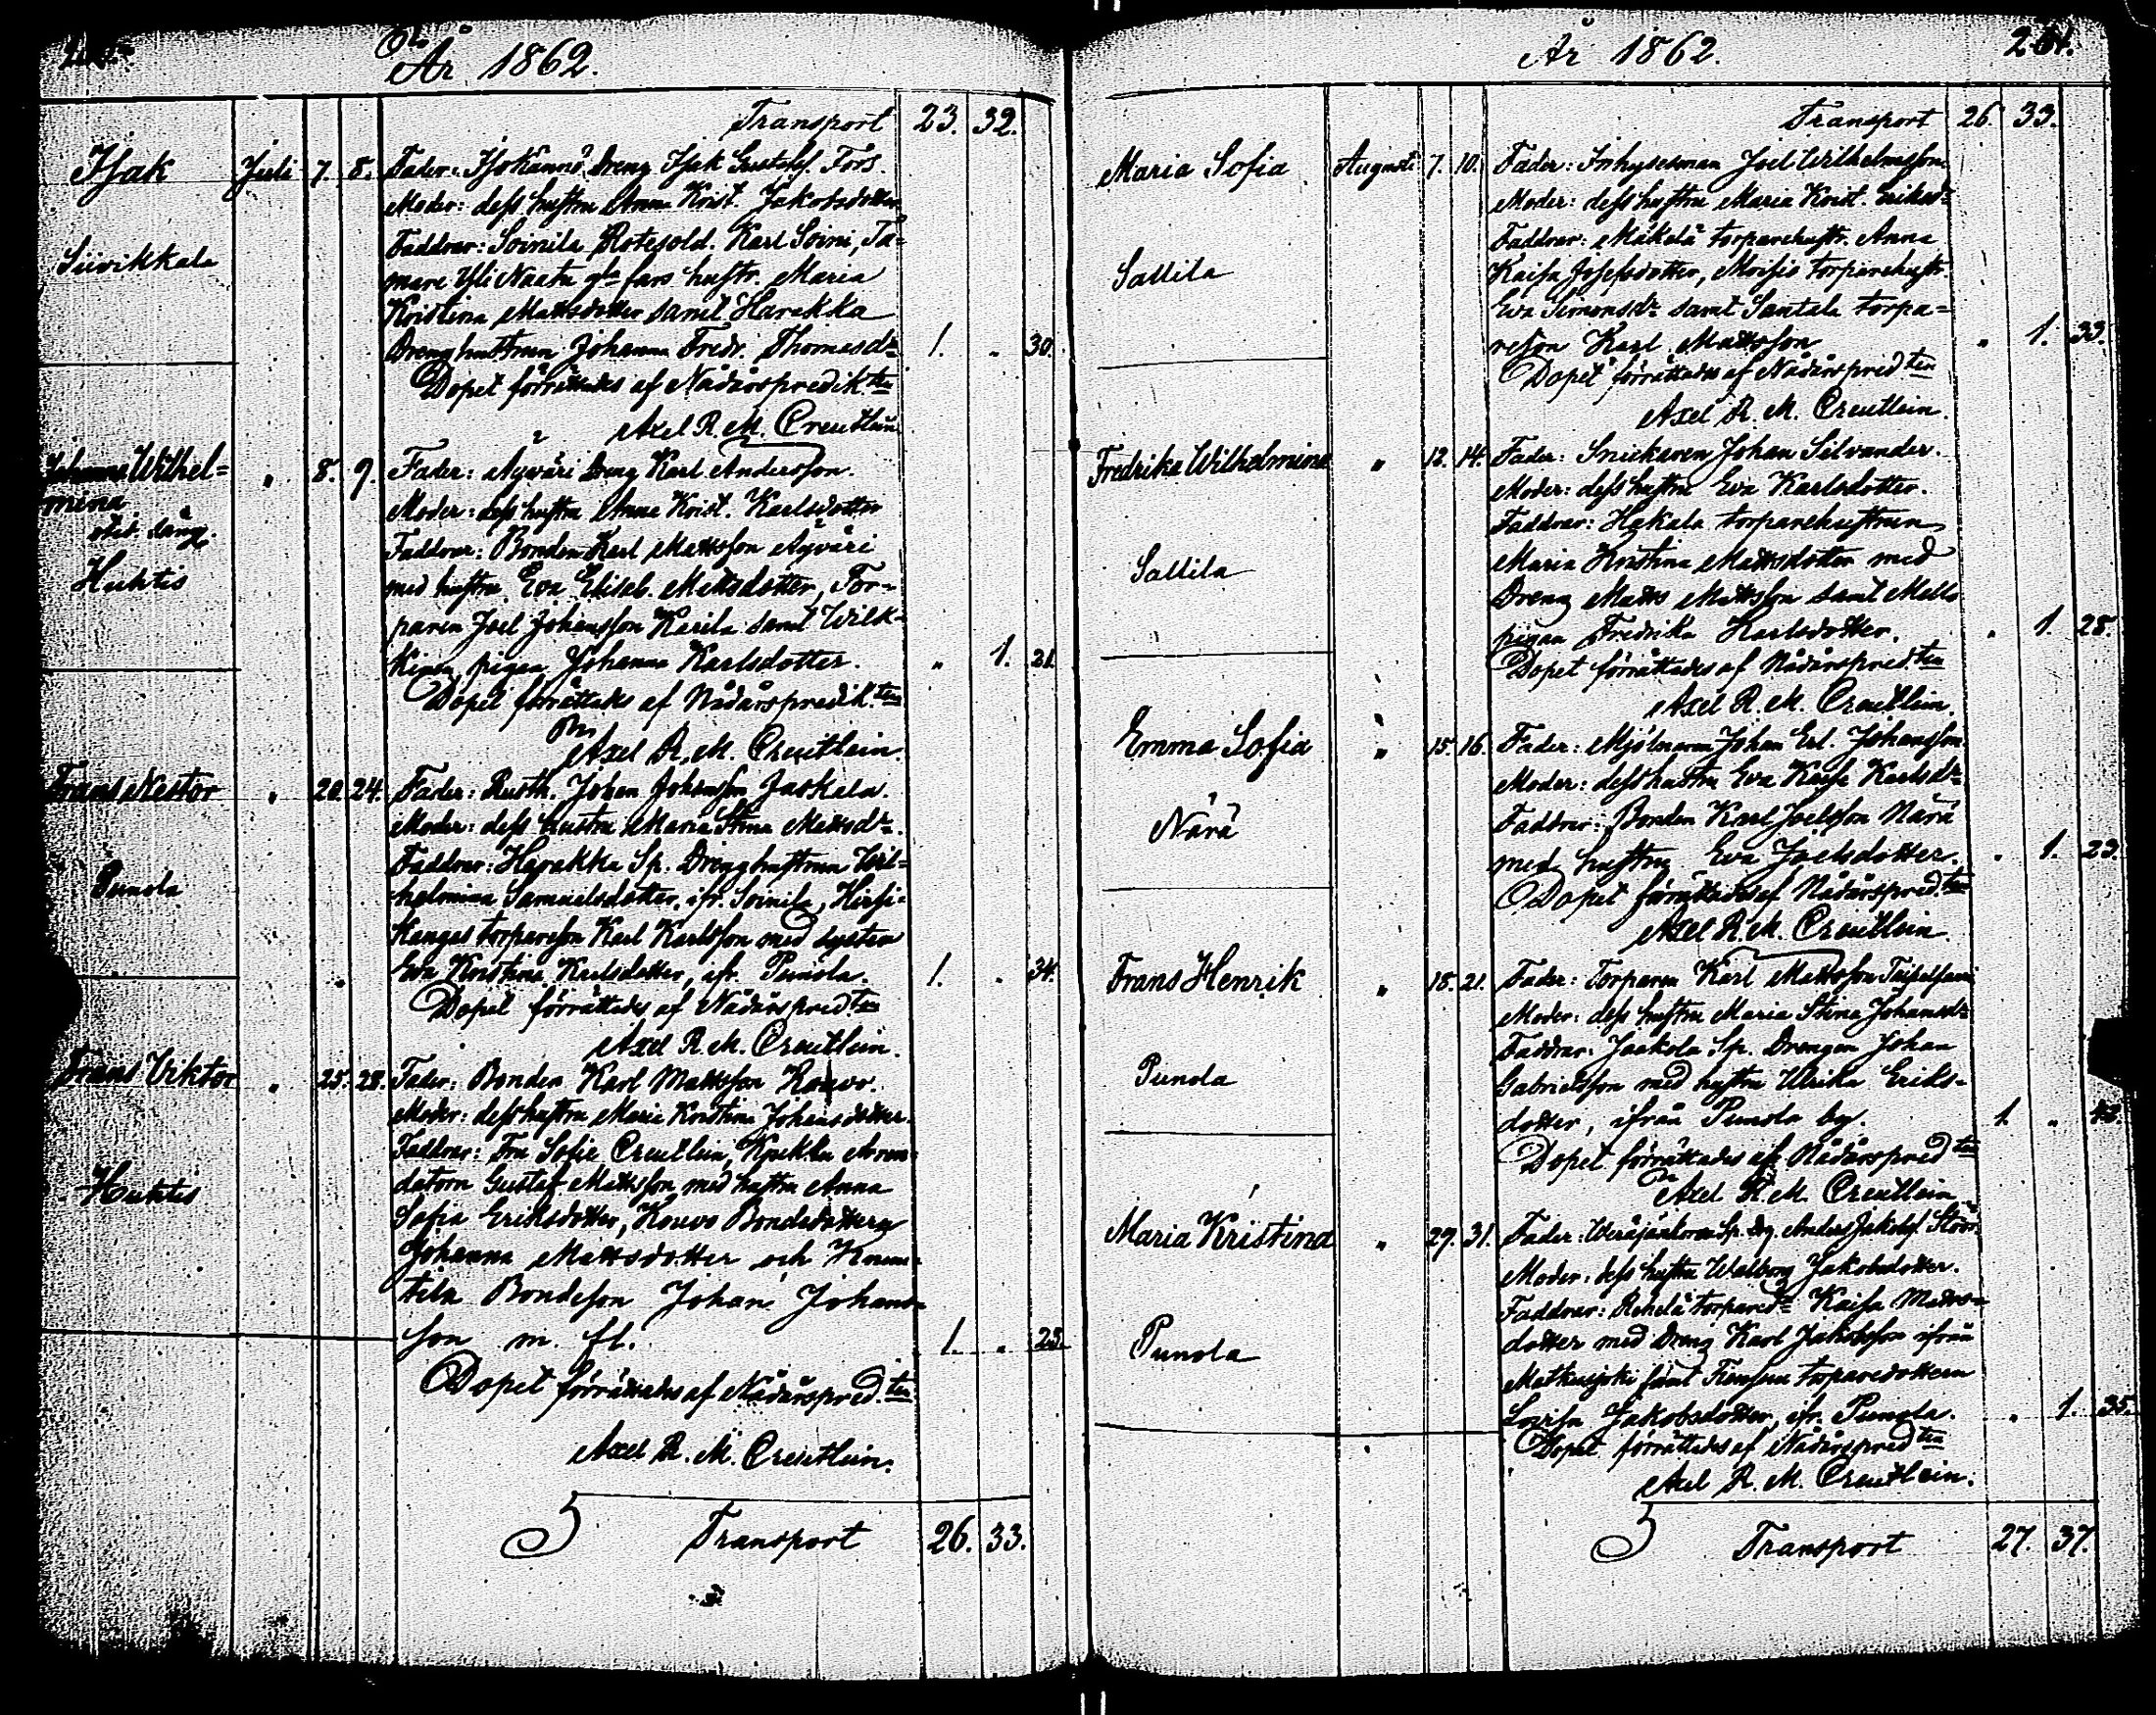 År 1862.
Transport 23. 32.
Isak Juli 7. 8. Fader: Isokanno Dreng Isak Gustafss. Fors.
Moder: dess hustru Anna Krist. Jakobsdotter
Siivikkala
Faddrar: Soinila Rotesold. Karl Soini, Ta=
mare Yli Naata fars hustr. Maria
Kristina Mattsdotter samt Harakka
Drenghustrun Johanna Fredr. Thomasdr 1. „ 30.
Dopet förrättades af Nådårspredikten
Axel R. M. Creutlein
Johanna Wilhel=
mina
Huhtis
„ 8. 9. Fader: Äyväri Dreng Karl Andersson.
Moder: dess hustru Anna Krist. Karlsdotter
Faddrar: Bonden Karl Mattsson Äyväri
med hustru Eva Elisab. Mattsdotter, Tor-
paren Joel Johansson Karila samt Wilk-
pigan Johanna Karlsdotter. „ 1. 21.
Dopet förrättades af Nådårspredikten
Axel R. M. Creutlein.
Frans Nestor „ 20. 24. Fader: Rusth. Johan Johansson Jaskala.
Moder: dess hustru Maria Stina Mattsdr.
Punola
Faddrar: Harakka Sp. Drenghustrun Wil=
helmina Samuelsdotter, ifr. Soinila, Hirsi-
kangas torpareson Karl Karlsson med systern
Eva Kristina Karlsdotter, ifr. Punola. 1. „ 34.
Dopet förrättades af Nådårspredten
Axel R. M. Creutlein.
Frans Viktor „ 25. 28. Fader: Bonden Karl Mattsson Kouvo.
Moder: dess hustru Maria Kristina Johansdotter.
Huhtis
Faddrar: Fru Sofie Creutlein, Arren-
datorn Gustaf Mattsson med hustru Anna
Sofia Eriksdotter, Kouvo Bondedottern
Johanna Mattsdotter och
tila Bondeson Johan Johans-
son m. fl. 1. „ 28.
Dopet förrättades af Nådårspred.ten
Axel R. M. Creutlein.
Transport 26. 33.
År 1862. 261.
Transport 26. 33.
Maria Sofia Augusti 7. 10. Fader: Inhysesman Joel Wilhelmsson
Moder: dess hustru Maria Krist. Eriksdr
Sallila
Faddrar: Mäkelä torparehustr. Anna
Kaisa Josefsdotter, Moisio torparehustr.
Eva Simonsdr samt Santala torpa=
reson Karl Mattsson „ 1. 33.
Dopet förrättades af Nådårspredten
Axel R. M. Creutlein.
Fredrika Wilhelmina „ 12. 14. Fader: Snickaren Johan Silvander.
Moder: dess hustru Eva Karlsdotter.
Sallila
Faddrar: Hakala torparehustrun
Maria Kristina Mattsdotter med
Dreng Matts Mattsson samt Mello
pigan Fredrika Karlsdotter. „ 1. 28.
Dopet förrättades af Nådårspred.ten
Axel R. M. Creutlein.
Emma Sofia „ 15. 16. Fader: Mjölnaren Johan Erl. Johansson
Moder: dess hustru Eva Kaisa Karlsdr
Närä
Faddrar: Bonden Karl Joelsson Närä
med hustru Eva Joelsdotter. „ 1. 23.
Dopet förrättades af Nådårspred.ten
Axel R. M. Creutlein.
Frans Henrik „ 18. 21. Fader: Torparen Karl Mattsson
Moder: dess hustru Maria Stina Johansdr
Punola
Faddrar: Jaakola Sp. Drengen Johan
Gabrielsson med hustru Ulrika Eriks-
dotter, ifrån Punola by. 1. „
Dopet förrättades af Nådårspredten
Axel R. M. Creutlein
Maria Kristina „ 29. 31. Fader: Sp. Drg. Anders Jakobss.
Moder: dess hustru Walborg Jakobsdotter.
Punola
Faddrar: Rekelä torparedr Kaisa Matts-
dotter med Dreng Karl Jakobsson ifrån
samt torparedottern
Lovisa Jakobsdotter, ifr. Punola. „ 1. 35.
Dopet förrättades af Nådårspredten
Axel R. M. Creutlein.
Transport 27. 37.